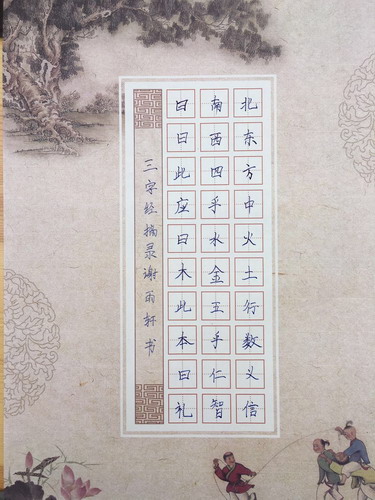 曰南北
曰西东
此四方
座乎中
曰水火
木金土
此五行
本乎数
曰仁义
礼智信
三字经摘录谢雨轩书